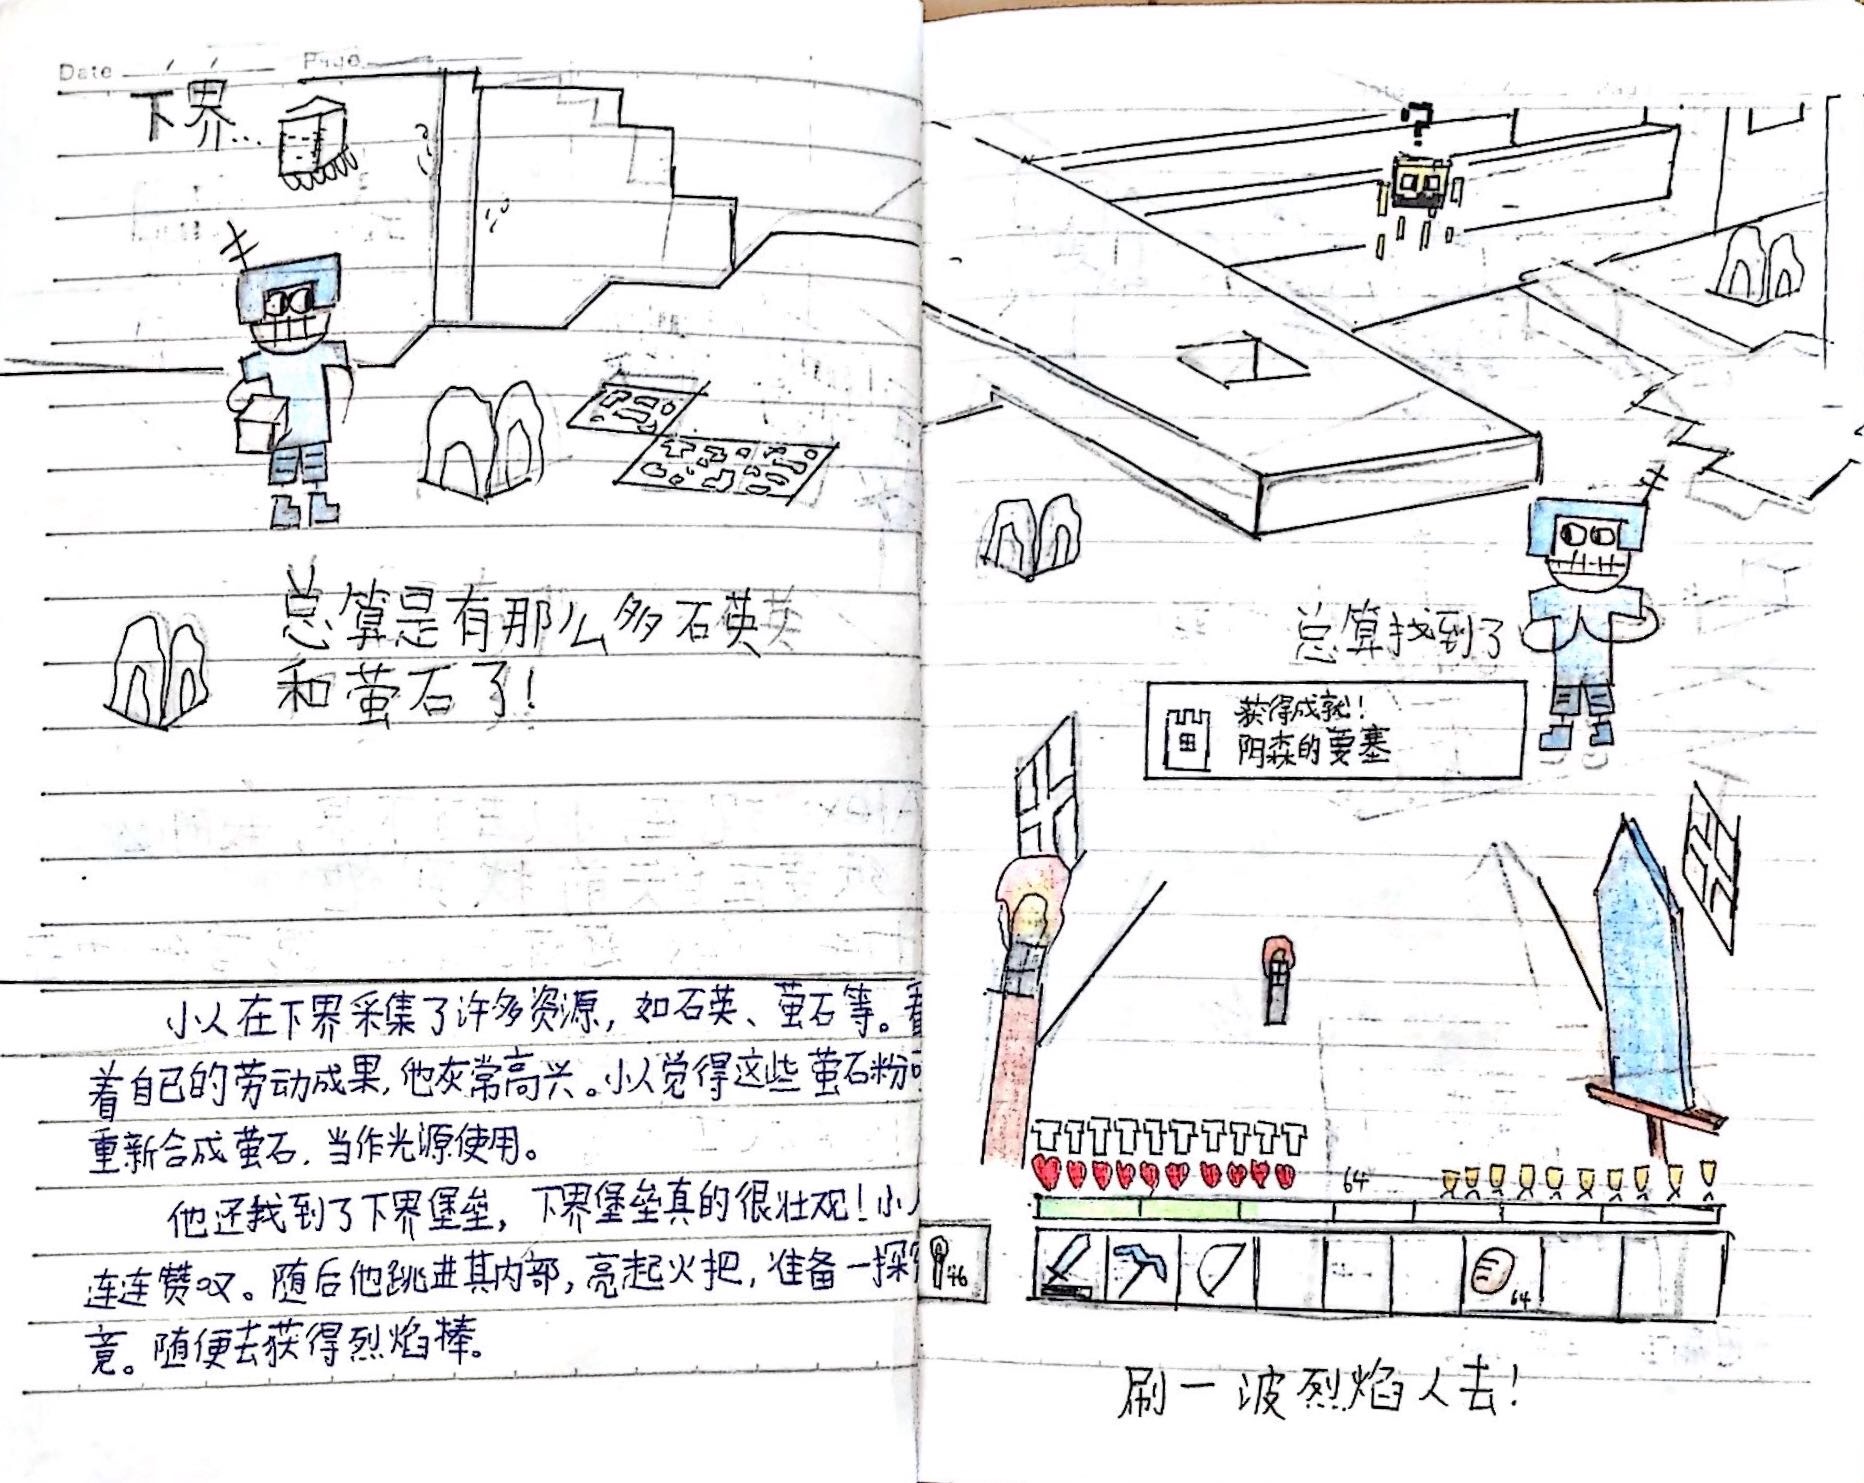 Date Page
下界...
总算是有那么多石英
和萤石了!
小人在下界采集了许多资源,如石英、萤石等。看
着自己的劳动成果,他灰常高兴。小人觉得这些萤石粉可
重新合成萤石,当作光源使用。
他还找到了下界堡垒,下界堡垒真的很壮观!小人
连连赞叹。随后他跳进其内部,亮起火把,准备一探究
竟。随便去获得烈焰棒。
?
总算找到了
获得成就!
阴森的要塞
64
46
64
刷一波烈焰人去!